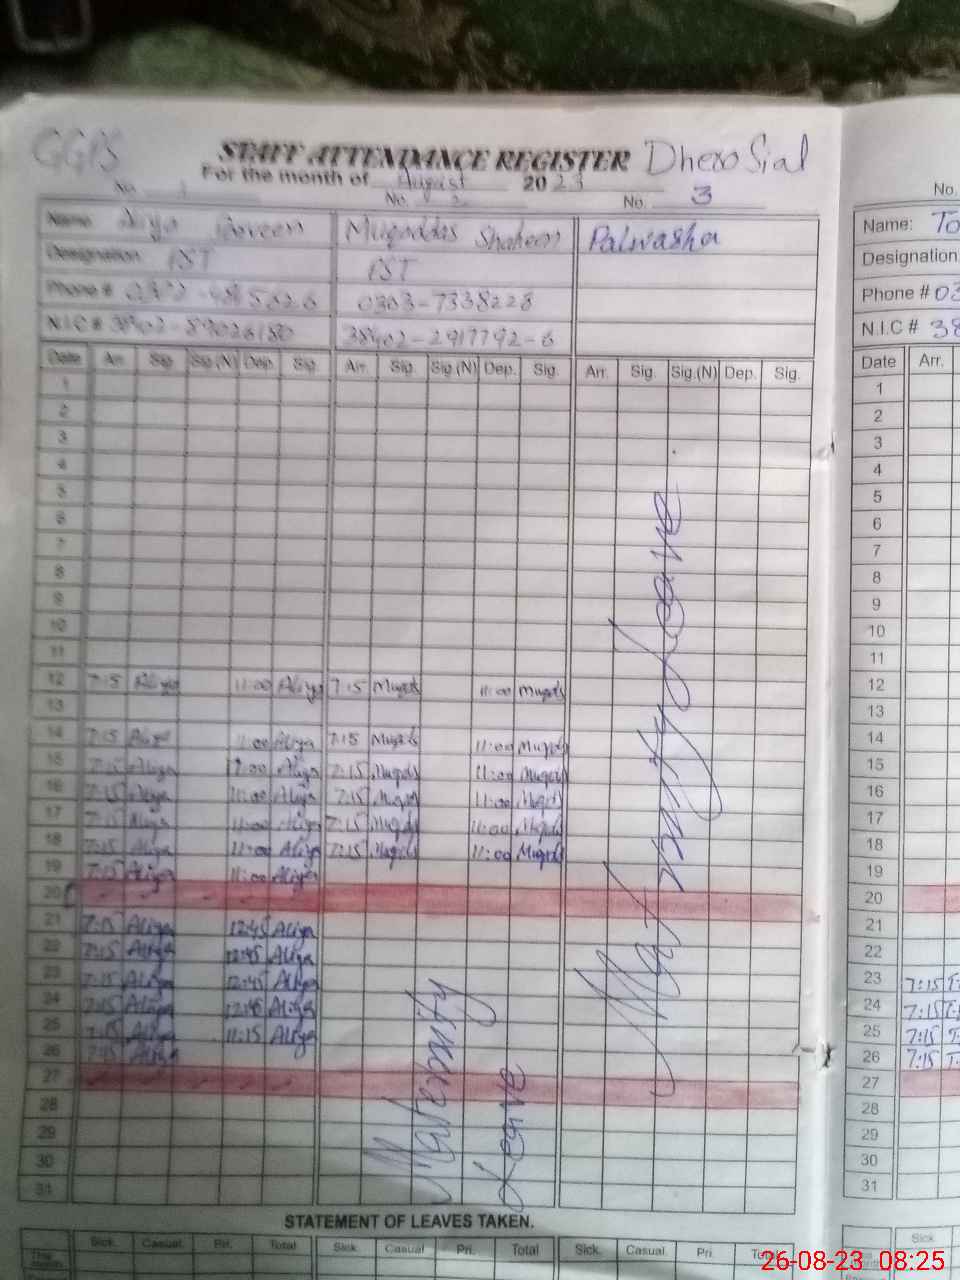 GGPS STAFF ATTENDANCE REGISTER Dhero Sial
For the month of August 2023
No. 1 No. 2 No. 3 No.
Name: Parveen Muqaddas Shaheen Palwasha Name: To
Designation: PST PST Designation
Phone # 0303-7338228 Phone # 03
N.I.C # 38402-2917792-6 N.I.C # 38
Date Arr. Sig. Sig.(N) Dep. Sig. Arr. Sig. Sig.(N) Dep. Sig. Arr. Sig. Sig.(N) Dep. Sig. Date Arr.
1 1
2 2
3 3
4 4
5 5
6 6
7 7
8 8
9 9
10 10
11 11
12 7:15 Aliya 11:00 Aliya 7:15 Muqds 11:00 Muqds 12
13 13
14 7:15 Aliya 11:00 Aliya 7:15 Muqds 11:00 Muqds 14
15 7:15 Aliya 11:00 Aliya 7:15 Muqds 11:00 Muqds 15
16 7:15 Aliya 11:00 Aliya 7:15 Muqds 11:00 Muqds 16
17 7:15 Aliya 11:00 Aliya 7:15 Muqds 11:00 Muqds 17
18 7:15 Aliya 11:00 Aliya 7:15 Muqds 11:00 Muqds 18
19 7:15 Aliya 11:00 Aliya 19
20 20
21 7:15 Aliya 12:45 Aliya 21
22 7:15 Aliya 12:45 Aliya 22
23 7:15 Aliya 12:45 Aliya 23 7:15
24 7:15 Aliya 12:45 Aliya 24 7:15
25 7:15 Aliya 11:15 Aliya 25 7:15
26 7:15 Aliya 26 7:15
27 27
28 28
29 29
30 30
31 31
Maternity Leave
Maternity Leave
STATEMENT OF LEAVES TAKEN.
Sick. Casual. Pri. Total Sick. Casual Pri. Total Sick. Casual. Pri. Total Sick
This
26-08-23 08:25